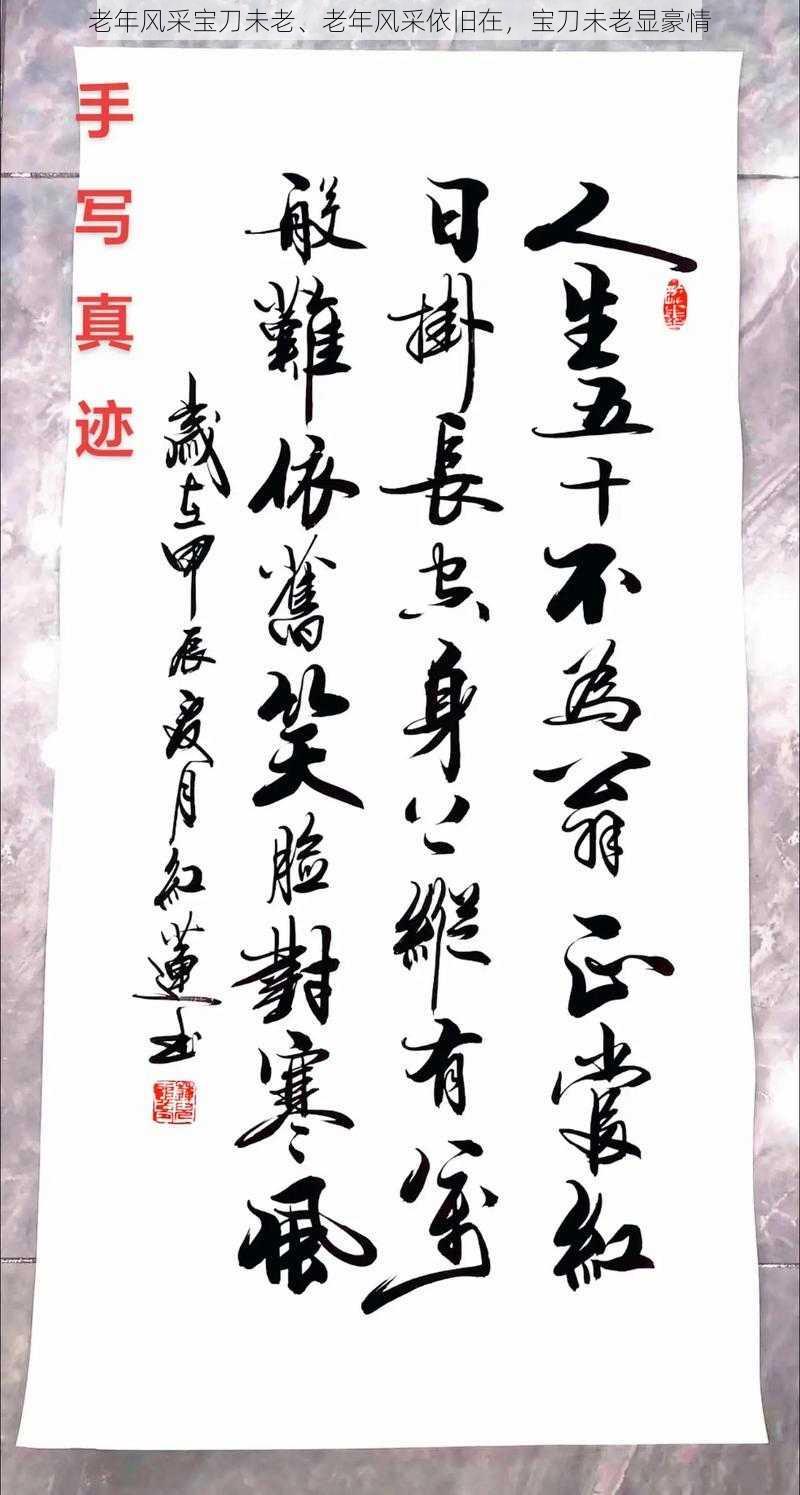 老年风采宝刀未老、老年风采依旧在，宝刀未老显豪情
手写真迹
人生五十不為翁正當紅
日掛長空身上縱有萬
般難依舊笑臉對寒風
歲在甲辰夏月紅蓮书